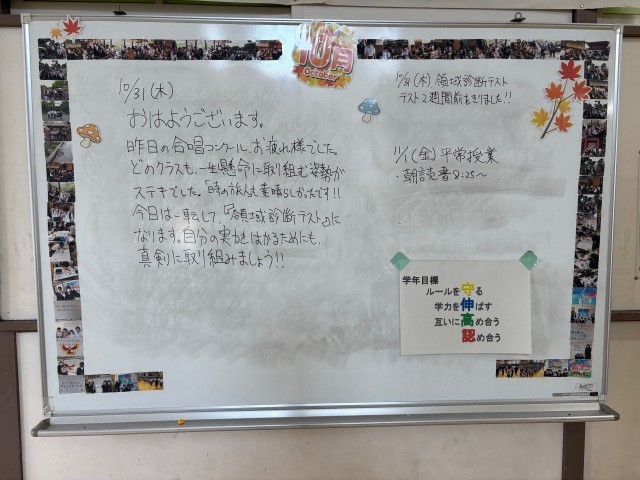 10月
October
10/31(木)
おはようございます。
昨日の合唱コンクール、お疲れ様でした。
どのクラスも、一生懸命に取り組む姿勢が
ステキでした。「時の旅人」も素晴らしかったです!!
今日は一転して、「領域診断テスト」に
なります。自分の実力をはかるためにも、
真剣に取り組みましょう!!
10/31(木) 領域診断テスト
テスト2週間前をきりました!!
11/1(金) 平常授業
・朝読書8:25〜
学年目標
ルールを守る
学力を伸ばす
互いに高め合う
認め合う